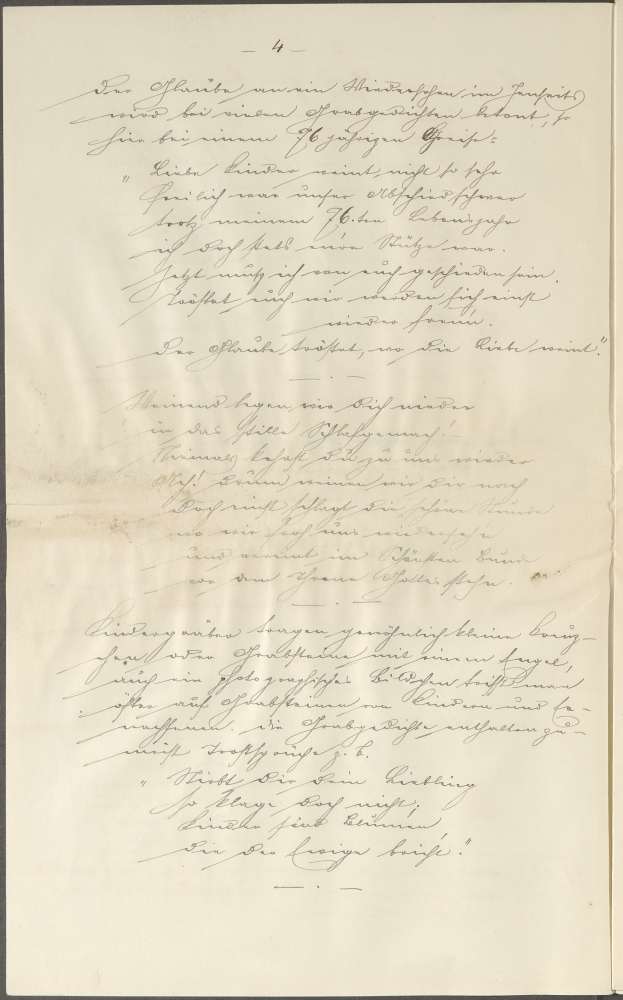 — 4 —
Der Glaube an ein Wiedersehen im Jenseits
wird bei vielen Grabgedichten betont, so
hier bei einem 76 jährigen Greise:
„ Liebe Kinder weint nicht so sehr
Freilich war unser Abschied schwer
trotz meinem 76.ten Lebensjahr
ich doch stets eure Stütze war.
Jetzt muß ich von euch geschieden sein.
Tröstet euch wir werden sich einst
wieder freun.
Der Glaube tröstet, wo die Liebe weint“.
— . —
Weinend legen wir Dich nieder
in das stille Schlafgemach!
Niemals kehrst Du zu uns wieder
Ach! Drum weinen wir Dir nach
Doch einst schlägt die schöne Stunde
wo wir froh uns wiedersehn
und vereint im schönsten Bunde
vor dem Throne Gottes stehn.
— . —
Kindergräber tragen gewöhnlich kleine Kreuz-
chen oder Grabsteine mit einem Engel,
auch ein photographisches Bildchen trifft man
öfter auf Grabsteinen von Kindern und Er-
wachsenen. Die Grabgedichte enthalten zu-
meist Trostsprüche z. B.
„ Stirbt Dir Dein Liebling
so klage doch nicht;
Kinder sind Blumen,
die der Ewige bricht.“
— . —